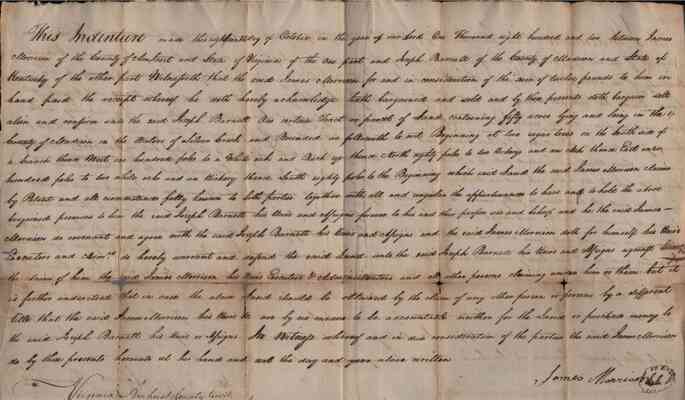 This Indenture made this eighteenth day of October in the year of our Lord One Thousand eight hundred and two between James
Morrison of the County of Amherst and State of Virginia of the one part and Joseph Barnett of the County of Madison and State of
Kentucky of the other part Witnesseth that the said James Morrison for and in consideration of the sum of twelve pounds to him in
hand paid the receipt whereof he doth hereby acknowledge hath bargained and sold and by these presents doth bargain sell
alien and confirm unto the said Joseph Barnett One certain Tract or parcel of Land containing fifty acres lying and being in the
County of Madison on the Waters of Silver Creek and Bounded as followeth to wit Beginning at two sugar trees on the north side of
a branch thence West one hundred poles to a White oak and thence North eighty poles to two hickorys and thence East one
hundred poles to two white oaks and an hickory thence South eighty poles to the Beginning which said Land the said James Morrison claims
by Patent and all circumstances fully known to both parties together with all and singular the appurtenances to have and to hold the above
bargained premises to him the said Joseph Barnett his Heirs and Assigns forever to his and their proper use and behoof and he the said James
Morrison do covenant and agree with the said Joseph Barnett his Heirs and Assigns and the said James Morrison doth for himself his Heirs
Executors and Admrs do hereby warrant and defend the said Land unto the said Joseph Barnett his Heirs and Assigns against
the claim of him the said James Morrison his Heirs Executors & Administrators and all other persons claiming under him or them but it
is further understood that in case the above Land should be obtained by the claim of any other person or persons by a different
title that the said James Morrison his Heirs &c are by no means to be accountable neither for the Land or purchase money to
the said Joseph Barnett his Heirs or Assigns In Witness whereof and in due consideration of the parties the said James Morrison
do by these presents hereunto set his hand and seal the day and year above written
James Morrison
Virginia Amherst County Court